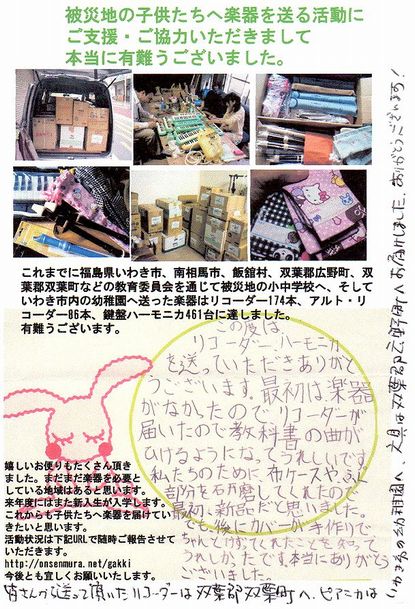 被災地の子供たちへ楽器を送る活動に
ご支援・ご協力いただきまして
本当に有難うございました。
これまでに福島県いわき市、南相馬市、飯舘村、双葉郡広野町、双
葉郡双葉町などの教育委員会を通じて被災地の小中学校へ、そして
いわき市内の幼稚園へ送った楽器はリコーダー174本、アルト・リ
コーダー86本、鍵盤ハーモニカ461台に達しました。
有難うございます。
この度は
リコーダー、ハーモニカ
を送っていただきありがと
うございます。最初は楽器
がなかったのでリコーダーが
届いたので教科書の曲が
ひけるようになってうれしいです。
私たちのために布ケースやふく
部分を石けんで磨してくれたので
最初、新品だと思いました。
でも、後にカバーが手作りで
ちゃんとけずってくれたことを知って
うれしかったです。本当にありがとう
ございました。
嬉しいお便りもたくさん頂き
ました。まだまだ楽器を必要と
している地域はあると思います。
来年度にはまた新入生が入学します。
これからも子供たちへ楽器を届けてい
きたいと思います。
活動状況は下記URLで随時ご報告させて
いただきます。
http://onsenmura.net/gakki
今後とも宜しくお願いいたします。
皆さんが送って頂いたリコーダーは双葉郡双葉町へ、ピアニカは
いわきの幼稚園へ、文具は双葉郡広野町へお届けしました。ありがとうございます!